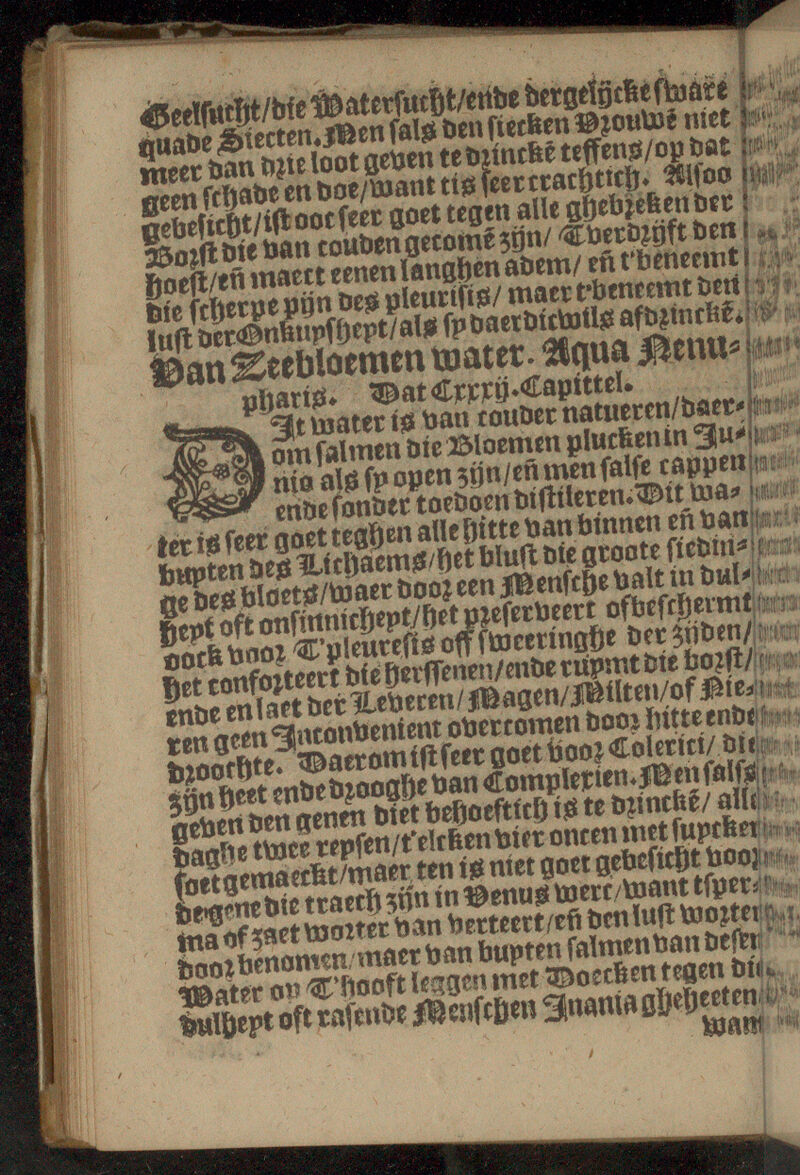 Geelſucht/die Waterſucht/ende dergelijcke ſware
quade Siecten. Men ſals den ſiecken Vrouwē niet
meer dan drie loot geven te drinckē teffens/op dat
geen ſchade en doe/want tis ſeer crachtich. Alſoo
gebeſicht/iſt ooc ſeer goet tegen alle ghebreken der
Borſt die van couden gecomē zijn/ Tverdrijft den
hoeſt/eñ maect eenen langhen adem/ eñ t'beneemt
die ſcherpe pijn des pleuriſis/ maer t'beneemt den
luſt der Onkuyſheyt/als ſy daer dicwils af drinckē.
Van Zeebloemen water. Aqua Nenu⸗
pharis. Dat Cxxxij. Capittel.
DIt water is van couder natueren/daer⸗
om ſalmen die Bloemen plucken in Ju⸗
nio als ſy open zijn/eñ men ſalſe cappen
ende ſonder toedoen diſtileren. Dit wa⸗
ter is ſeer goet teghen alle hitte van binnen eñ van
buyten des Lichaems/het bluſt die groote ſiedin⸗
ge des bloets/waer door een Menſche valt in dul⸗
heyt oft onſinnicheyt/het preſerveert of beſchermt
oock voor T'pleureſis off ſweeringhe der zijden/
het conforteert die herſſenen/ende ruymt die borſt/
ende en laet der Leveren/ Magen/ Milten/of Nie⸗
ren geen Inconvenient overcomen door hitte ende
droochte. Daerom iſt ſeer goet voor Colerici/ die
zijn heet ende drooghe van Complexien. Men ſalſs
geven den genen diet behoeftich is te drinckē/ alle
daghe twee reyſen/t'elcken vier oncen met ſuycker
ſoet gemaeckt/maer ten is niet goet gebeſicht voor
degene die traech zijn in Venus werc/want tſper⸗
ma of zaet worter van verteert/eñ den luſt worter
door benomen/maer van buyten ſalmen van deſen
Water op T'hooft leggen met Doecken tegen die
dulheyt oft raſende Menſchen Inania gheheeten
want